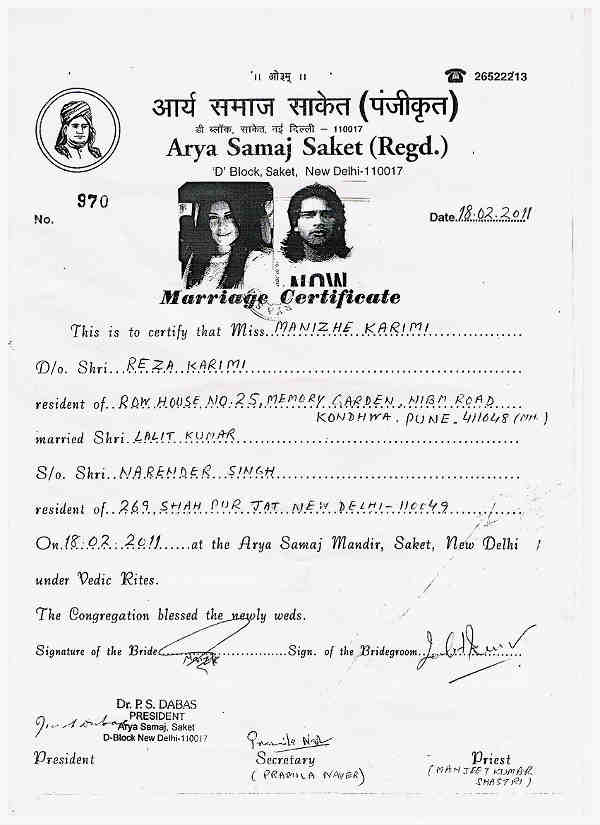 ।। ओ३म् ।।
☎ 26522213
आर्य समाज साकेत (पंजीकृत)
डी ब्लॉक, साकेत, नई दिल्ली – 110017
Arya Samaj Saket (Regd.)
'D' Block, Saket, New Delhi-110017
No. 970
Date 18.02.2011
NOW
Marriage Certificate
This is to certify that Miss MANIZHE KARIMI
D/o. Shri REZA KARIMI
resident of ROW HOUSE NO.25, MEMORY GARDEN, NIBM ROAD
KONDHWA, PUNE-411048 (MH.)
married Shri LALIT KUMAR
S/o. Shri NARENDER SINGH
resident of 269 SHAH PUR JAT NEW DELHI-110049
On 18.02.2011 at the Arya Samaj Mandir, Saket, New Delhi
under Vedic Rites.
The Congregation blessed the newly weds.
Signature of the Bride Sign. of the Bridegroom
Dr. P.S. DABAS
PRESIDENT
Arya Samaj, Saket
D-Block New Delhi-110017
President Secretary Priest
(PRAMILA NAYER) (MANJEET KUMAR
SHASTRI)